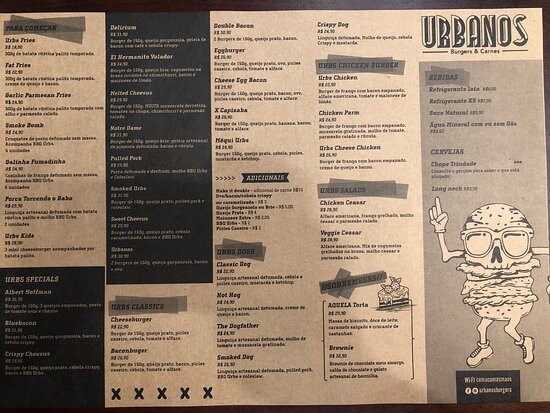 PARA COMEÇAR
Urbs Fries
R$ 18,90
300g de batata rústica palito temperada.
Fat Fries
R$ 22,90
300g de batata rústica palito temperada,
creme de queijo e bacon.
Garlic Parmesan Fries
R$ 24,90
300g de batata rústica palito temperada com
alho e parmesão ralado.
Smoke Bomb
R$ 24,90
Croquetes de porco defumado sem massa.
Acompanha BBQ Urbs.
5 unidades
Galinha Fumadinha
R$ 24,90
Coxinhas de frango defumado sem massa.
Acompanha BBQ Urbs.
6 unidades
Porca Torcendo o Rabo
R$ 29,90
Linguiça artesanal defumada com batata
rústica palito e molho BBQ Urbs.
6 unidades
Urbs Kids
R$ 28,90
3 mini cheeseburger acompanhados por
batata palito.
URBS SPECIALS
Albert Hoffman
R$ 36,90
Burger de 150g, 3 queijos empanados, pesto
de tomate seco e rúcula.
Bluebacon
R$ 31,90
Burger de 150g, queijo gorgonzola, cebola
crispy e bacon.
Crispy Cheeeus
R$ 29,90
Burger de 150g, queijo prato, cebola crispy,
bacon e BBQ Urbs.
Delirium
R$ 31,90
Burger de 150g, queijo gorgonzola, geleia de
bacon com café e cebola crispy.
El Hermanito Volador
R$ 34,90
Burger de 150g, queijo brie, cogumelos na
brasa curados no chimichurri, bacon e
maionese de limão.
Melted Cheeeus
R$ 29,90
Burger de 150g, MUITA mussarela derretida,
tomates na chapa, chimichurri e parmesão
ralado.
Notre Dame
R$ 31,90
Burger de 150g, queijo brie, geleia artesanal
de pimenta defumada, bacon e rúcula.
Pulled Fork
R$ 29,90
Porco defumado e desfiado, molho BBQ Urbs
e Coleslaw.
Smoked Urbs
R$ 31,90
Burger de 150g, queijo prato, pulled pork e
coleslaw.
Sweet Cheeeus
R$ 29,90
Burger de 150g, queijo prato, cebola
caramelizada, bacon e BBQ Urbs.
Urbanos
R$ 36,90
Burger de 150g, queijo gorgonzola, bacon e
ovo.
URBS CLASSICS
Cheeseburger
R$ 22,90
Burger de 150g, queijo prato, picles
caseiro, tomate e alface.
Baconbuger
R$ 26,90
Burger de 150g, queijo prato, bacon, picles
caseiro, tomate e alface.
X X X X X
Double Bacon
R$ 32,90
2 Burgers de 150g, queijo prato, bacon.
Eggburger
R$ 25,90
Burger de 150g, queijo prato, ovo, picles
caseiro, cebola, tomate e alface.
Cheese Egg Bacon
R$ 29,90
Burger de 150g, queijo prato, bacon, ovo, picles
caseiro, cebola, tomate e alface.
X Capixaba
R$ 29,90
Burger de 150g, queijo prato, banana, bacon,
tomate e alface.
Méqui Urbs
R$ 24,90
Burger de 150g, queijo prato, cebola, picles,
mostarda e ketchup.
>>>>> ADICIONAIS
Make it double - adicional de carne R$10
Ovo/bacon/cebola crispy
ou caramelizada - R$ 3
Queijo Gorgonzola ou Brie - R$ 6,00
Queijo Prato - R$ 4
Maionese Extra - R$ 2,00
BBQ Urbs - R$ 2
Picles Caseiro - R$ 2
URBS DOGS
Classic Dog
R$ 22,90
Linguiça artesanal defumada, cebola e picles
caseiro, mostarda e ketchup.
Hot Hog
R$ 24,90
Linguiça artesanal defumada, creme de
queijo e bacon.
The Dogfather
R$ 24,90
Linguiça artesanal defumada, molho de
tomate e mussarela gratinada.
Smoked Dog
R$ 24,90
Linguiça artesanal defumada, pulled pork,
BBQ Urbs e coleslaw.
Crispy Dog
R$ 24,90
Linguiça defumada, Molho de queijo, cebola
Crispy e mostarda.
URBS CHICKEN BURGER
Urbs Chicken
R$ 22,90
Burger de frango com bacon empanado,
alface americana, tomate e maionese de
limão.
Chicken Parm
R$ 24,90
Burger de frango com bacon empanado,
mussarela gratinada, molho de tomate,
parmesão e chimichurri.
Urbs Cheese Chicken
R$ 26,90
Burger de frango com bacon empanado,
queijo prato, cebola caramelizada.
URBS SALADS
Chicken Ceasar
R$ 28,90
Alface americana, frango grelhado, molho
ceasar e parmesão ralado.
Veggie Ceasar
R$ 28,90
Alface americana, Mix de cogumelos
grelhados na brasa, molho ceasar e
parmesão ralado.
DSOBREMESAS//
AQUELA Torta
R$ 29,90
Massa de biscoito, doce de leite,
caramelo salgado e crocante de
castanhas.
Brownie
R$ 22,90
Brownie de chocolate meio amargo,
calda de chocolate e gelato
artesanal de baunilha.
URBANOS
Burgers & Carnes
BEBIDAS
Refrigerante lata R$6,00
Refrigerante KS R$7,00
Suco Natural R$9,90
Água Mineral com ou sem Gás
R$4,67
CERVEJAS
Chope Trindade
Consulte o garçom para saber quais
Long neck
Wi Fi comacomasmaos
urbanosburgers